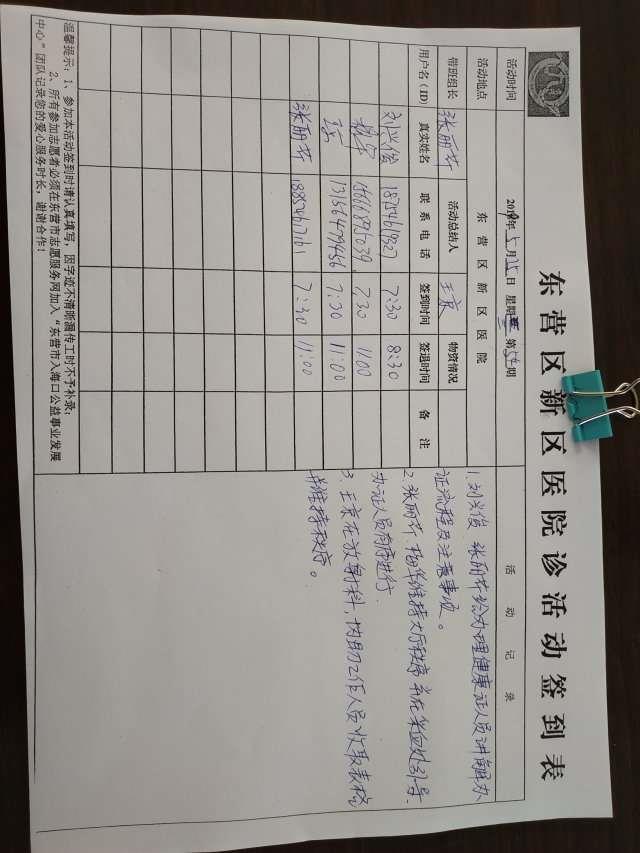 东营区新区医院诊活动签到表
活动时间 2019年5月25日 星期 第54期 活动记录
活动地点 东营区新区医院
带班组长 张丽芹 活动总结人 王京 物资情况
用户名(ID) 真实姓名 联系电话 签到时间 签退时间 备注
刘兴俊 18754619327 7:30 8:30
15666895039 7:30 11:00
13156479456 7:30 11:00
张丽芹 18854667161 7:30 11:00
1.刘兴俊 张丽芹给办理健康证人员讲解办
证流程及注意事项。
2.张丽芹 维持大厅秩序 并在 处引导
办证人员有序进行.
3.王京在放射科,协助工作人员收取表格
并维持秩序。
温馨提示:1、参加本活动签到时请认真填写,因字迹不清晰漏传工时不予补录;
2、所有参加志愿者必须在东营市志愿服务网加入“东营市入海口公益事业发展
中心”团队记录您的爱心服务时长,谢谢合作!